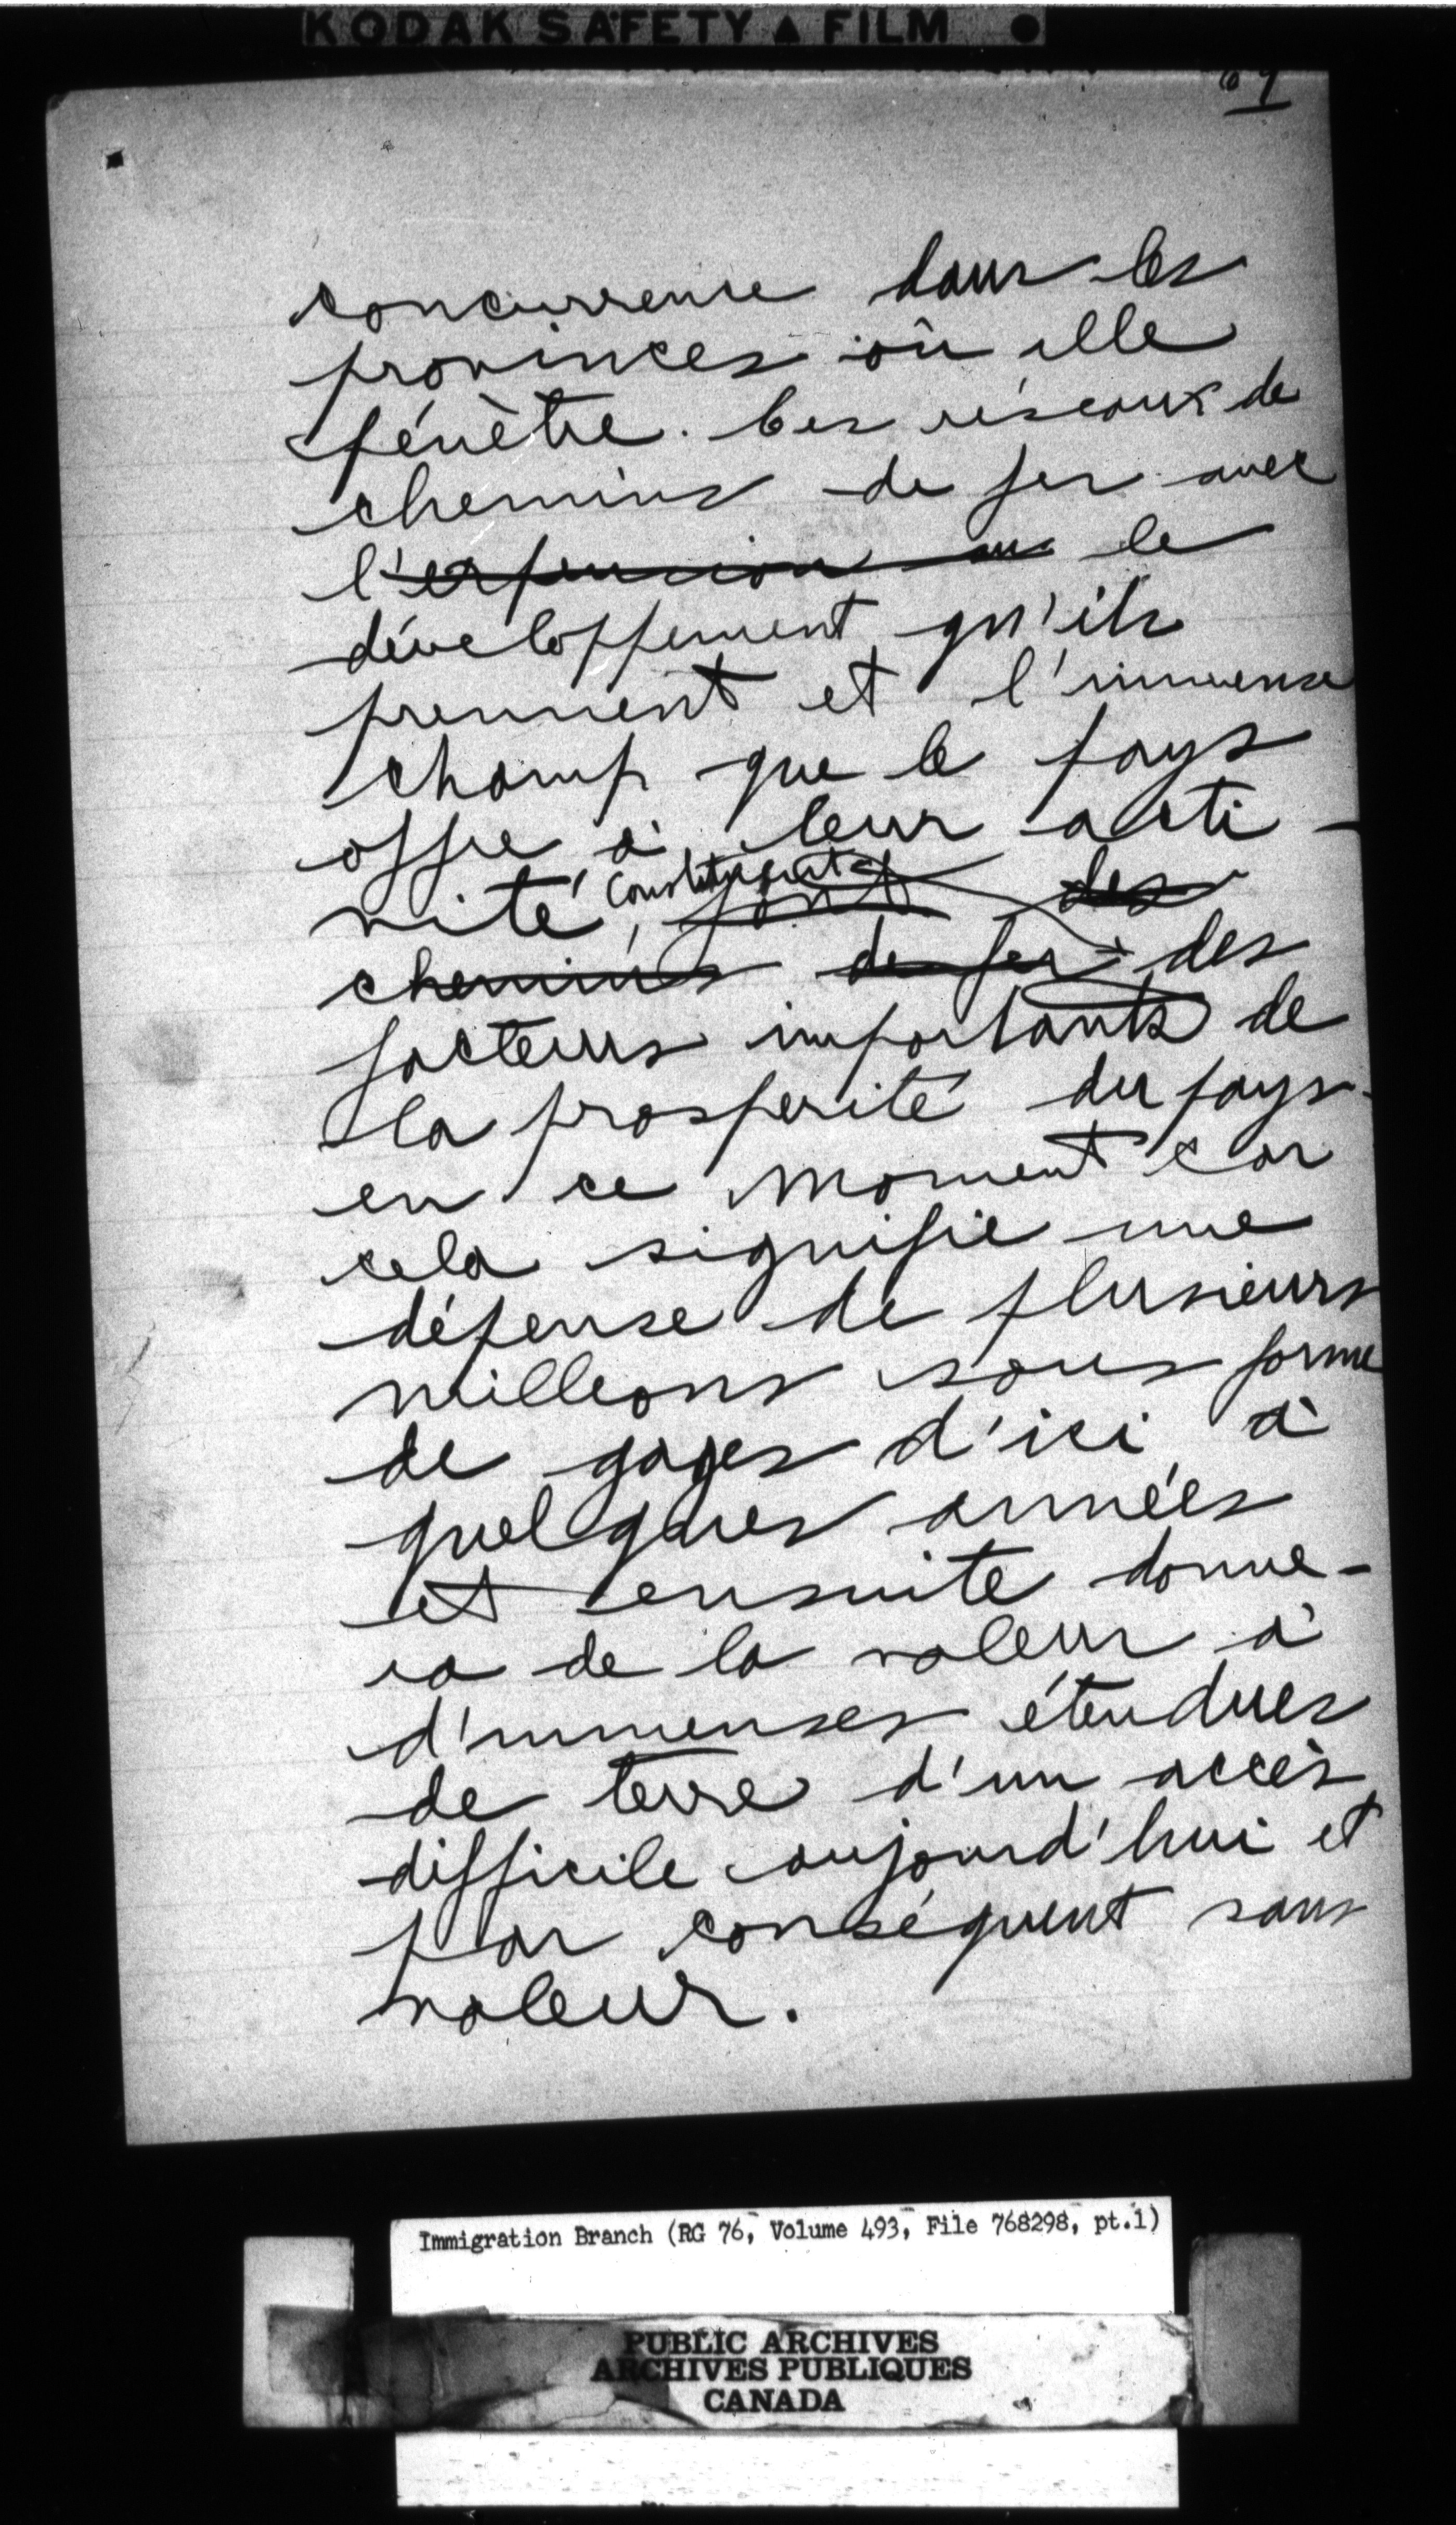 KODAK SAFETY ▲ FILM ●
69
concurrence dans les
provinces où elle
pénètre. Les réseaux de
chemins de fer avec
l'expension au le
développement qu'ils
prennent et l'immense
champ que le pays
offre à leur acti-
vité, constituent sont des
chemins de fer des
facteurs importants de
la prospérité du pays
en ce moment car
cela signifie une
dépense de plusieurs
millions sous forme
de gages d'ici à
quelques années
et ensuite donne-
ra de la valeur à
d'immenses étendues
de terre d'un accès
difficile aujourd'hui et
par conséquent sans
valeur.
Immigration Branch (RG 76, Volume 493, File 768298, pt.1)
PUBLIC ARCHIVES
ARCHIVES PUBLIQUES
CANADA